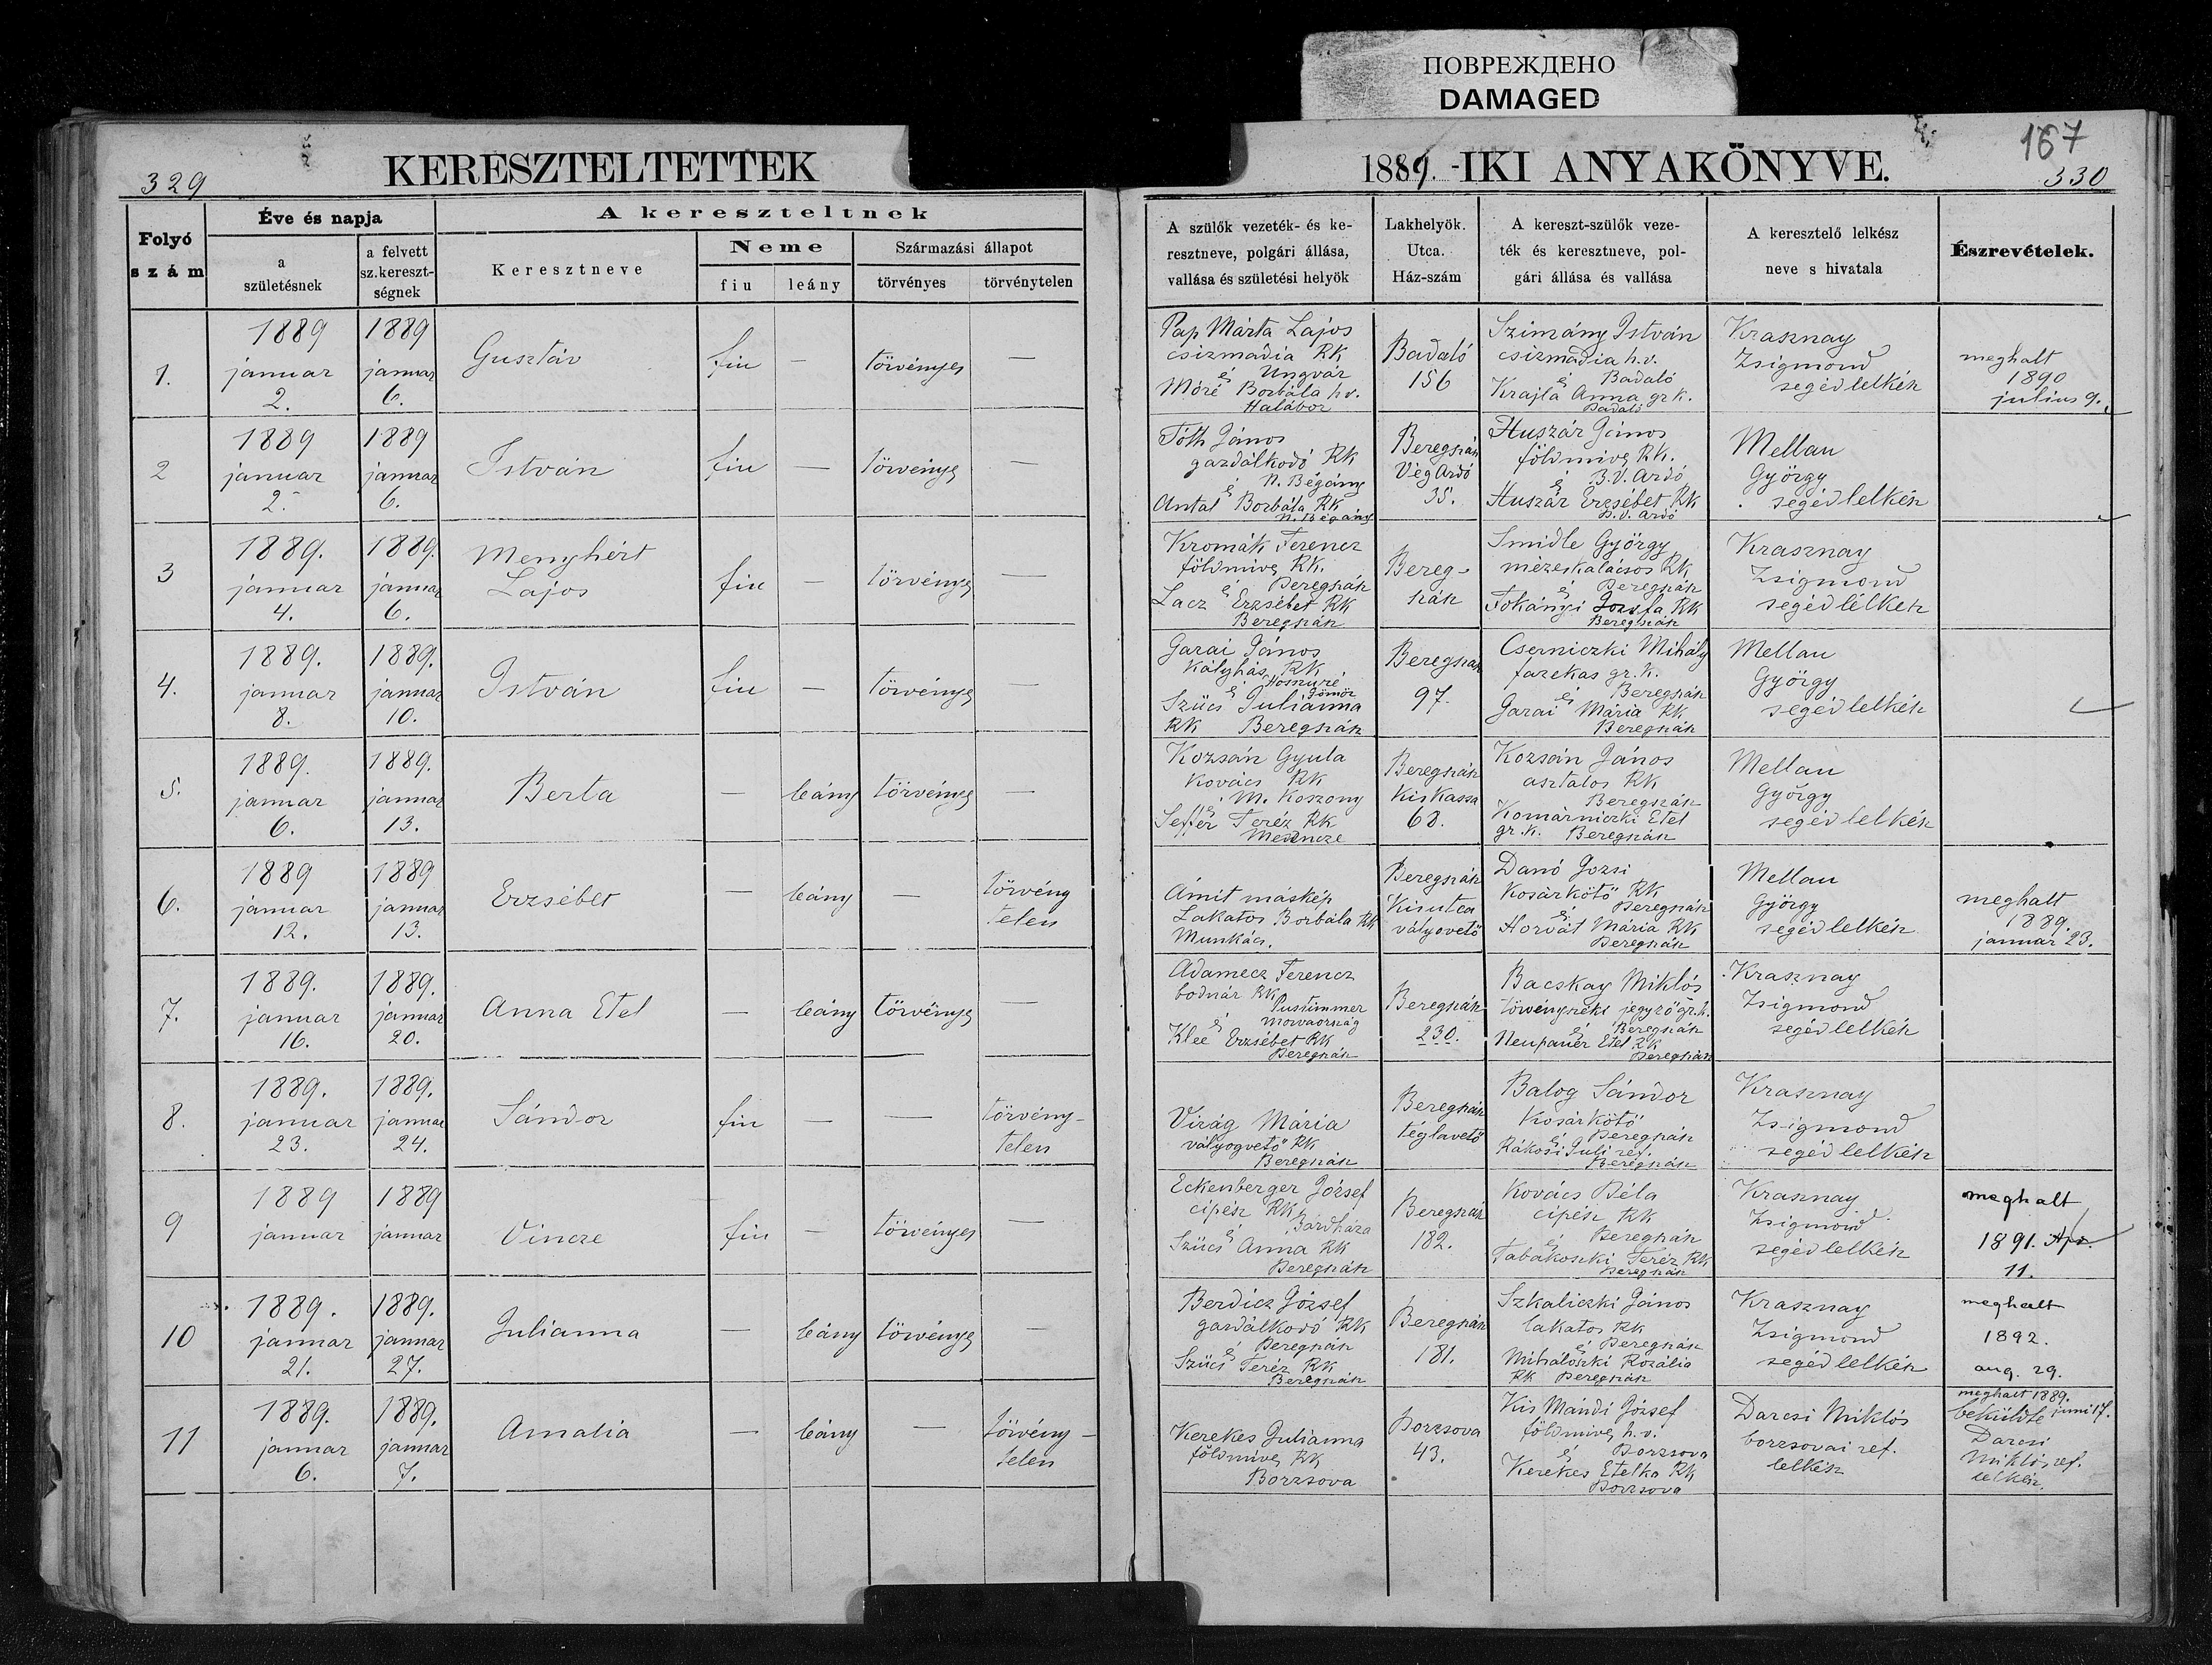 ПОВРЕЖДЕНО
DAMAGED
329
KERESZTELTETTEK
1889. -IKI ANYAKÖNYVE.
167
330
Folyó
szám
Éve és napja
a
születésnek
a felvett
sz.kereszt-
ségnek
A kereszteltnek
Keresztneve
Neme
fiu
leány
Származási állapot
törvényes
törvénytelen
A szülők vezeték- és ke-
resztneve, polgári állása,
vallása és születési helyök
Lakhelyök.
Utca.
Ház-szám
A kereszt-szülők veze-
ték és keresztneve, pol-
gári állása és vallása
A keresztelő lelkész
neve s hivatala
Észrevételek.
1.
1889
januar
2.
1889
januar
6.
Gusztáv
fiu
—
törvényes
—
Pap Márta Lajos
csizmadia RK
é Ungvár
Móré Borbála h.v.
Halábor
Badaló
156
Szimány István
csizmadia h.v.
é Badaló
Krajla Anna gr k.
Badaló
Krasznay
Zsigmond
segédlelkész
meghalt
1890
julius 9.
2
1889
januar
2.
1889
januar
6.
István
fiu
—
törvényes
—
Tóth János
gazdálkodó RK
é N. Bégány
Antal Borbála RK
N. Bégány
Beregszász
VégArdó
35.
Huszár János
földmives RK.
é B.V. Ardó
Huszár Erzsébet RK
B.V. Ardó
Mellau
György
segédlelkész
3
1889.
januar
4.
1889.
januar
6.
Menyhért
Lajos
fiu
—
törvényes
—
Kromák Ferencz
földmives RK.
é Beregszász
Lacz Erzsébet RK
Beregszász
Bereg-
szász
Smidle György
mézeskalácsos RK
é Beregszász
Tokányi Jozefa RK
Beregszász
Krasznay
Zsigmond
segédlelkész
4.
1889.
januar
8.
1889.
januar
10.
István
fiu
—
törvényes
—
Garai János
Kályhás RK
é Gömör
Szücs Julianna
RK Beregszász
Beregszász
97.
Cserniczki Mihály
fazekas gr. k.
é Beregszász
Garai Mária RK
Beregszász
Mellau
György
segédlelkész
5.
1889.
januar
6.
1889.
januar
13.
Berta
—
leány
törvényes
—
Kozsán Gyula
Kovács RK
é M. Koszony
Seffer Teréz RK
Beregszász
KisKassa
68.
Kozsán János
asztalos RK
Beregszász
Komárniczki Etel
gr.k. Beregszász
Mellau
György
segédlelkész
6.
1889
januar
12.
1889
januar
13.
Erzsébet
—
leány
—
törvény
telen
Ámit máskép
Lakatos Borbála RK
Munkács.
Beregszász
Kisutca
vályovető
Danó Jozsi
Kosárkötő RK
é Beregszász
Horvát Mária RK
Beregszász
Mellau
György
segédlelkész
meghalt
1889.
januar 23.
7.
1889.
januar
16.
1889.
januar
20.
Anna Etel
—
leány
törvényes
—
Adamecz Ferencz
bodnár RK
Pustimmer
é Morvaország
Klee Erzsébet RK
Beregszász
Beregszász
230.
Bacskay Miklós
törvényszéki jegyző gr.k.
é Beregszász
Neupauer Etel RK
Beregszász
Krasznay
Zsigmond
segédlelkész
8.
1889.
januar
23.
1889.
januar
24.
Sándor
fiu
—
—
törvény-
telen
Virág Mária
vályogvető RK
Beregszász
Beregszász
téglavető
Balog Sándor
Kosárkötő
é Beregszász
Rákosi Juli ref.
Beregszász
Krasznay
Zsigmond
segédlelkész
9
1889
januar
1889
januar
Vincze
fiu
—
törvényes
—
Eckenberger József
cipész RK
é Bárdháza
Szücs Anna RK
Beregszász
Beregszász
182.
Kovács Béla
cipész RK
é Beregszász
Tabákoszki Teréz RK
Beregszász
Krasznay
Zsigmond
segédlelkész
meghalt
1891. Apr.
11.
10
1889.
januar
21.
1889.
januar
27.
Julianna
—
leány
törvényes
—
Berdicz József
gazdálkodó RK
é Beregszász
Szücs Teréz RK
Beregszász
Beregszász
181.
Szkaliczki János
lakatos RK
é Beregszász
Miháloszki Rozália
RK Beregszász
Krasznay
Zsigmond
segédlelkész
meghalt
1892.
aug. 29.
11
1889.
januar
6.
1889.
januar
7.
Amalia
—
leány
—
törvény-
telen
Kerekes Julianna
földmives RK
Borzsova
Borzsova
43.
Kis Mándi József
földmives h.v.
é Borzsova
Kerekes Etelka RK
Borzsova
Darcsi Miklós
borzsovai ref.
lelkész
meghalt 1889.
beküldte juni 17.
Darcsi
Miklós ref.
lelkész.